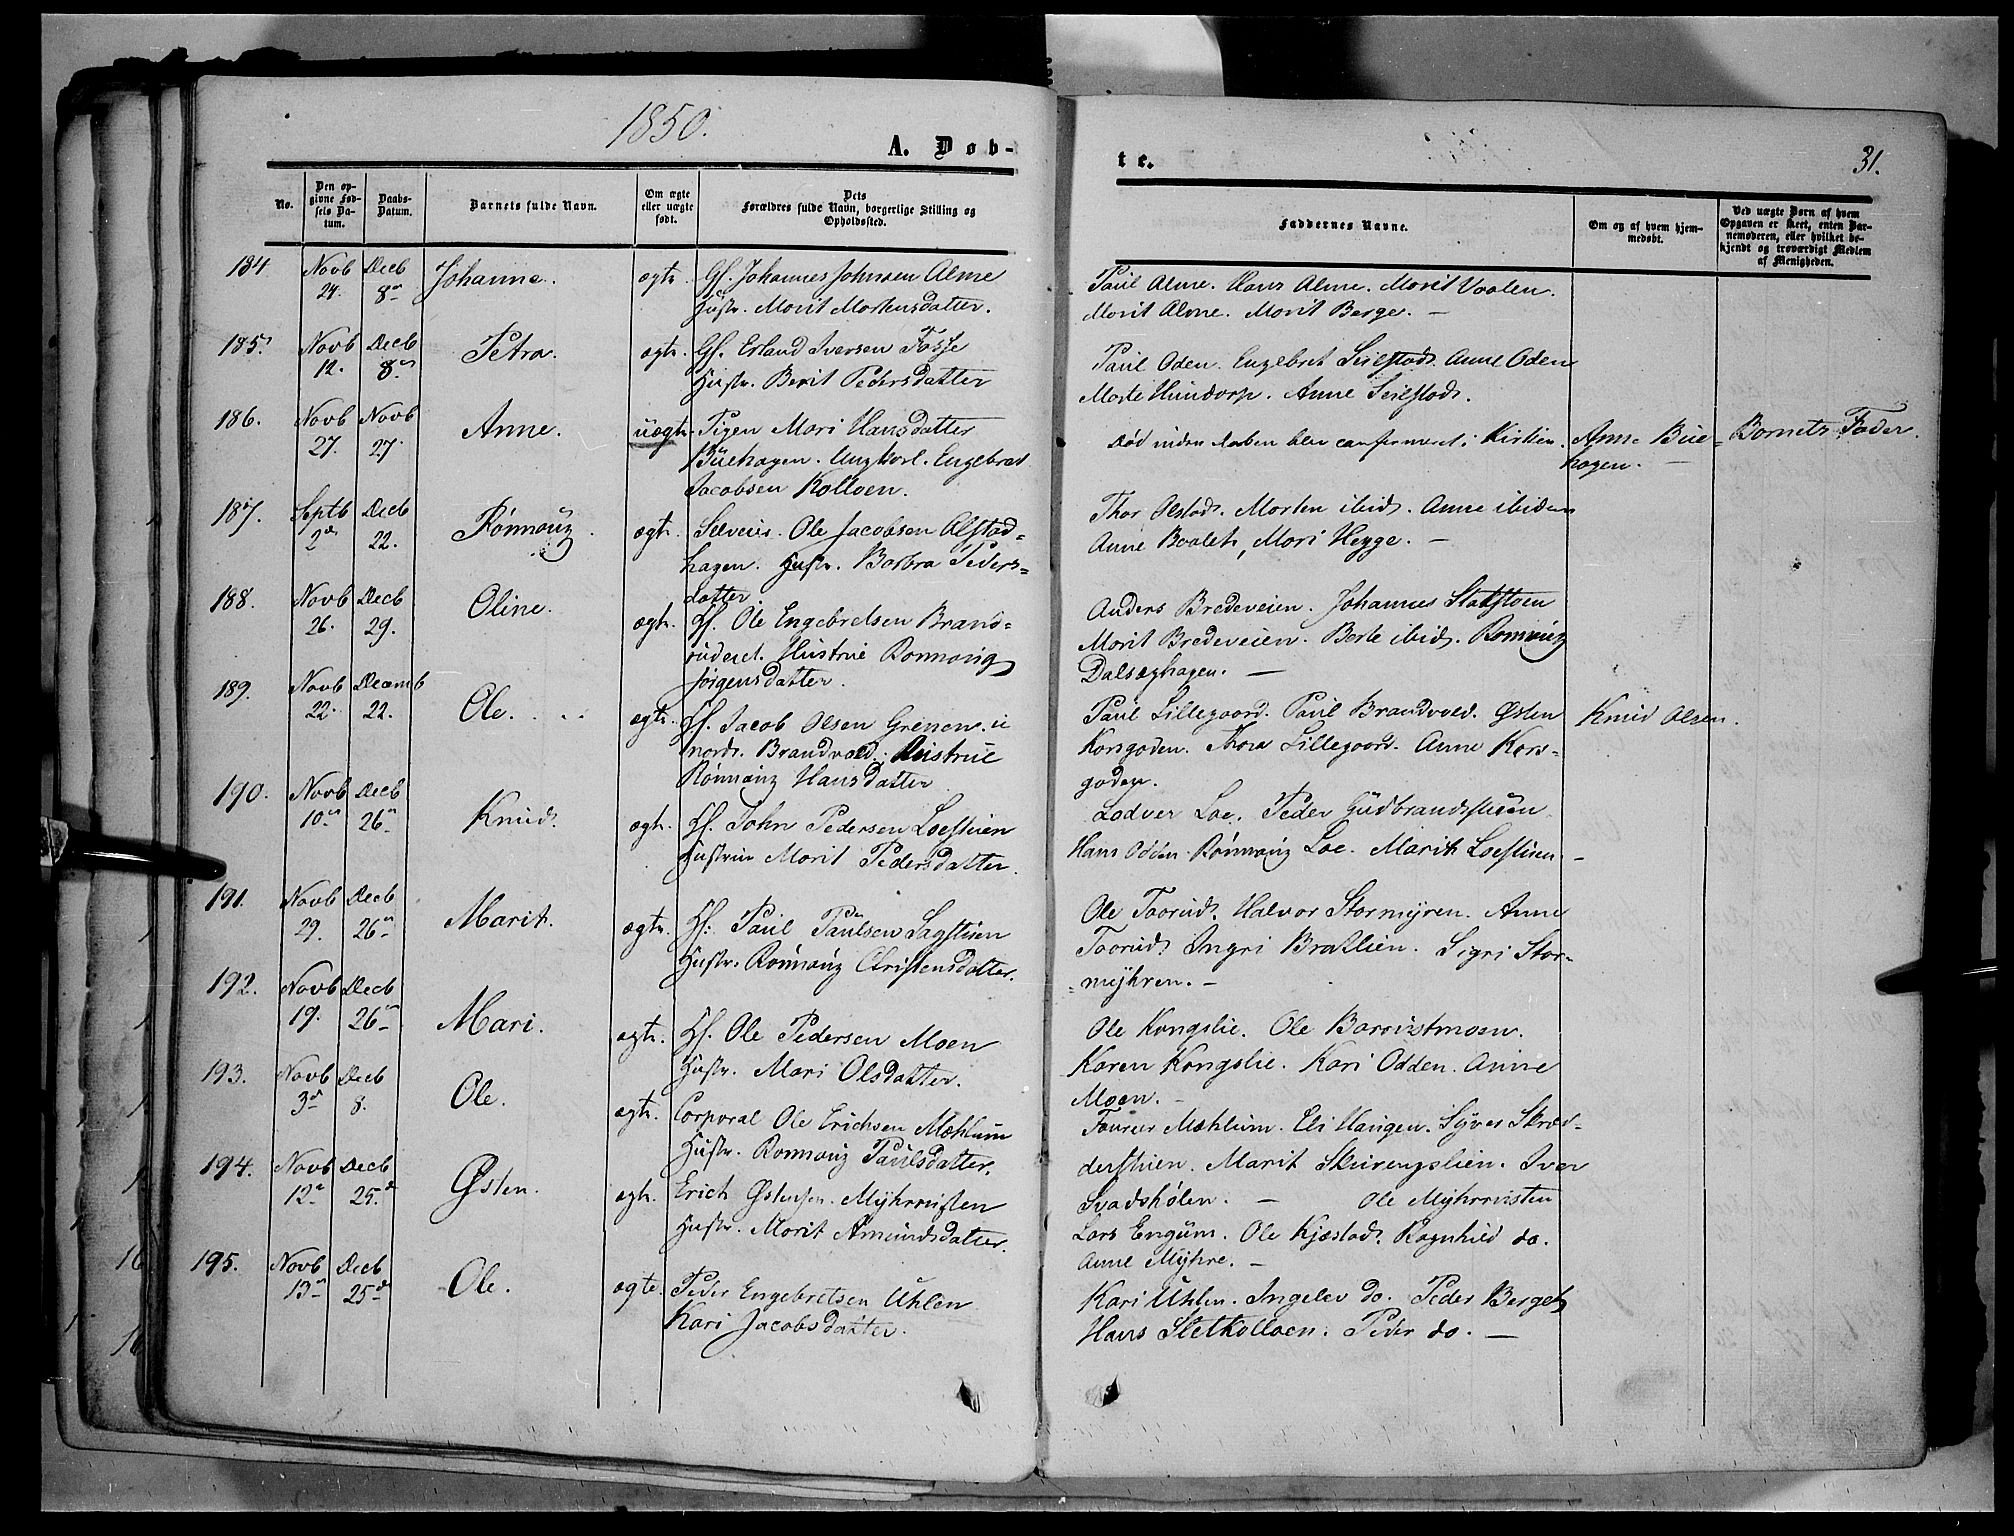 1850.
A. Døb-
te.
31.
No.
Den op-
givne Fød-
sels Da-
tum.
Daabs-
Datum.
Barnets fulde Navn.
Om ægte
eller uægte
født.
Dets
Forældres fulde Navn, borgerlige Stilling og
Opholdssted.
Faddernes Navne.
Om og af hvem hjem-
medøbt.
Ved uægte Børn af hvem
Opgaven er skeet, enten Bar-
nemoderen, eller hvilket be-
kjendt og troværdigt Medlem
af Menigheden.
184. Novb 24. Decb 8de Johanne. ægte. Gf. Johannes Johnsen Alme
Hustr. Morit Mortensdatter.
Paul Alme. Hans Alme. Morit Vaalen.
Morit Alme. Morit Berge. —
185. Novb 12. Decb 8de Petra. ægte. Gf. Erland Iversen Fosse
Hustr. Berit Pedersdatter
Paul Oden. Engebret Seilstad. Anne Oden
Marte Hundorp. Anne Seilstad.
186. Novb 27. Novb 27. Anne. uægte. Pigen Mari Hansdatter
Buehagen. Ungkarl. Engebret
Jacobsen Kolloen.
Død inden daaben blev confirmeret i Kirken.
Anne Bue-
hagen. —
Barnets Fader.
187. Septb 2de Decb 22. Rønnaug. ægte. Selveier. Ole Jacobsen Alstad-
hagen. Hustr. Barbra Peders-
datter.
Thor Olstad. Morten ibid. Anne ibidem
Anne Baalet, Mari Hegge. —
188. Novb 26. Decb 29. Oline. ægte. Hf. Ole Engebretsen Brand-
rudend. Hustrue Ronnaug
Jørgensdatter.
Anders Bredeveien. Johannes Statstoen
Morit Bredeveien. Berte ibid. Ronnaug
Dalseghagen. —
189. Novb 22. Decemb 22. Ole. ægte. Hf. Jacob Olsen Grenen. u
nordr. Brandvold. Hustrue
Rønnaug Hansdatter
Paul Lillegaard. Paul Brandvold. Østen
Korsgaden. Thora Lillegaard. Anne Kors-
gaden.
Knud Olsen.
190. Novb 10de Decb 26de Knud. ægte. Hf. John Pedersen Loestuen
Hustrue Morit Pedersdatter.
Lodver Loe. Peder Gudbrandstuen.
Hans Odden. Rønnaug Loe. Marit Loestuen. —
191. Novb 29. Decb 26de Marit. ægte. Hf: Paul Paulsen Sagstuen
Hustr. Rønnaug Christensdatter.
Ole Toorud. Halvor Stormyren. Anne
Toorud. Ingri Bratlien. Sigri Stor-
myhren. —
192. Novb 19. Decb 26de Mari. ægte. Hf. Ole Pedersen Moen
Hustr. Mari Olsdatter.
Ole Kongslie. Ole Barrustmoen.
Karen Kongslie. Kari Odden. Anne
Moen. —
193. Novb 3de Decb 8. Ole. ægte. Corporal Ole Erichsen Mæhlum
Hustr. Ronnaug Paulsdatter.
Mæhlum. Eli Haugen. Syver Skræd-
derstuen. Marit Skurengslien. Iver
Svadshølen. —
194. Novb 12te Decb 25de Østen. ægte. Erich Østensen. Myhrrusten
Hustr. Morit Amundsdatter.
Ole Myhrrusten
Lars Engum. Ole Kjæstad. Ragnhild do.
Anne Myhre. —
195. Novb 13de Decb 25de Ole. ægte. Peder Engebretsen Uhlen
Kari Jacobsdatter.
Kari Uhlen. Ingelev do. Peder Berget
Hans Sletkolloen. Peder do. —